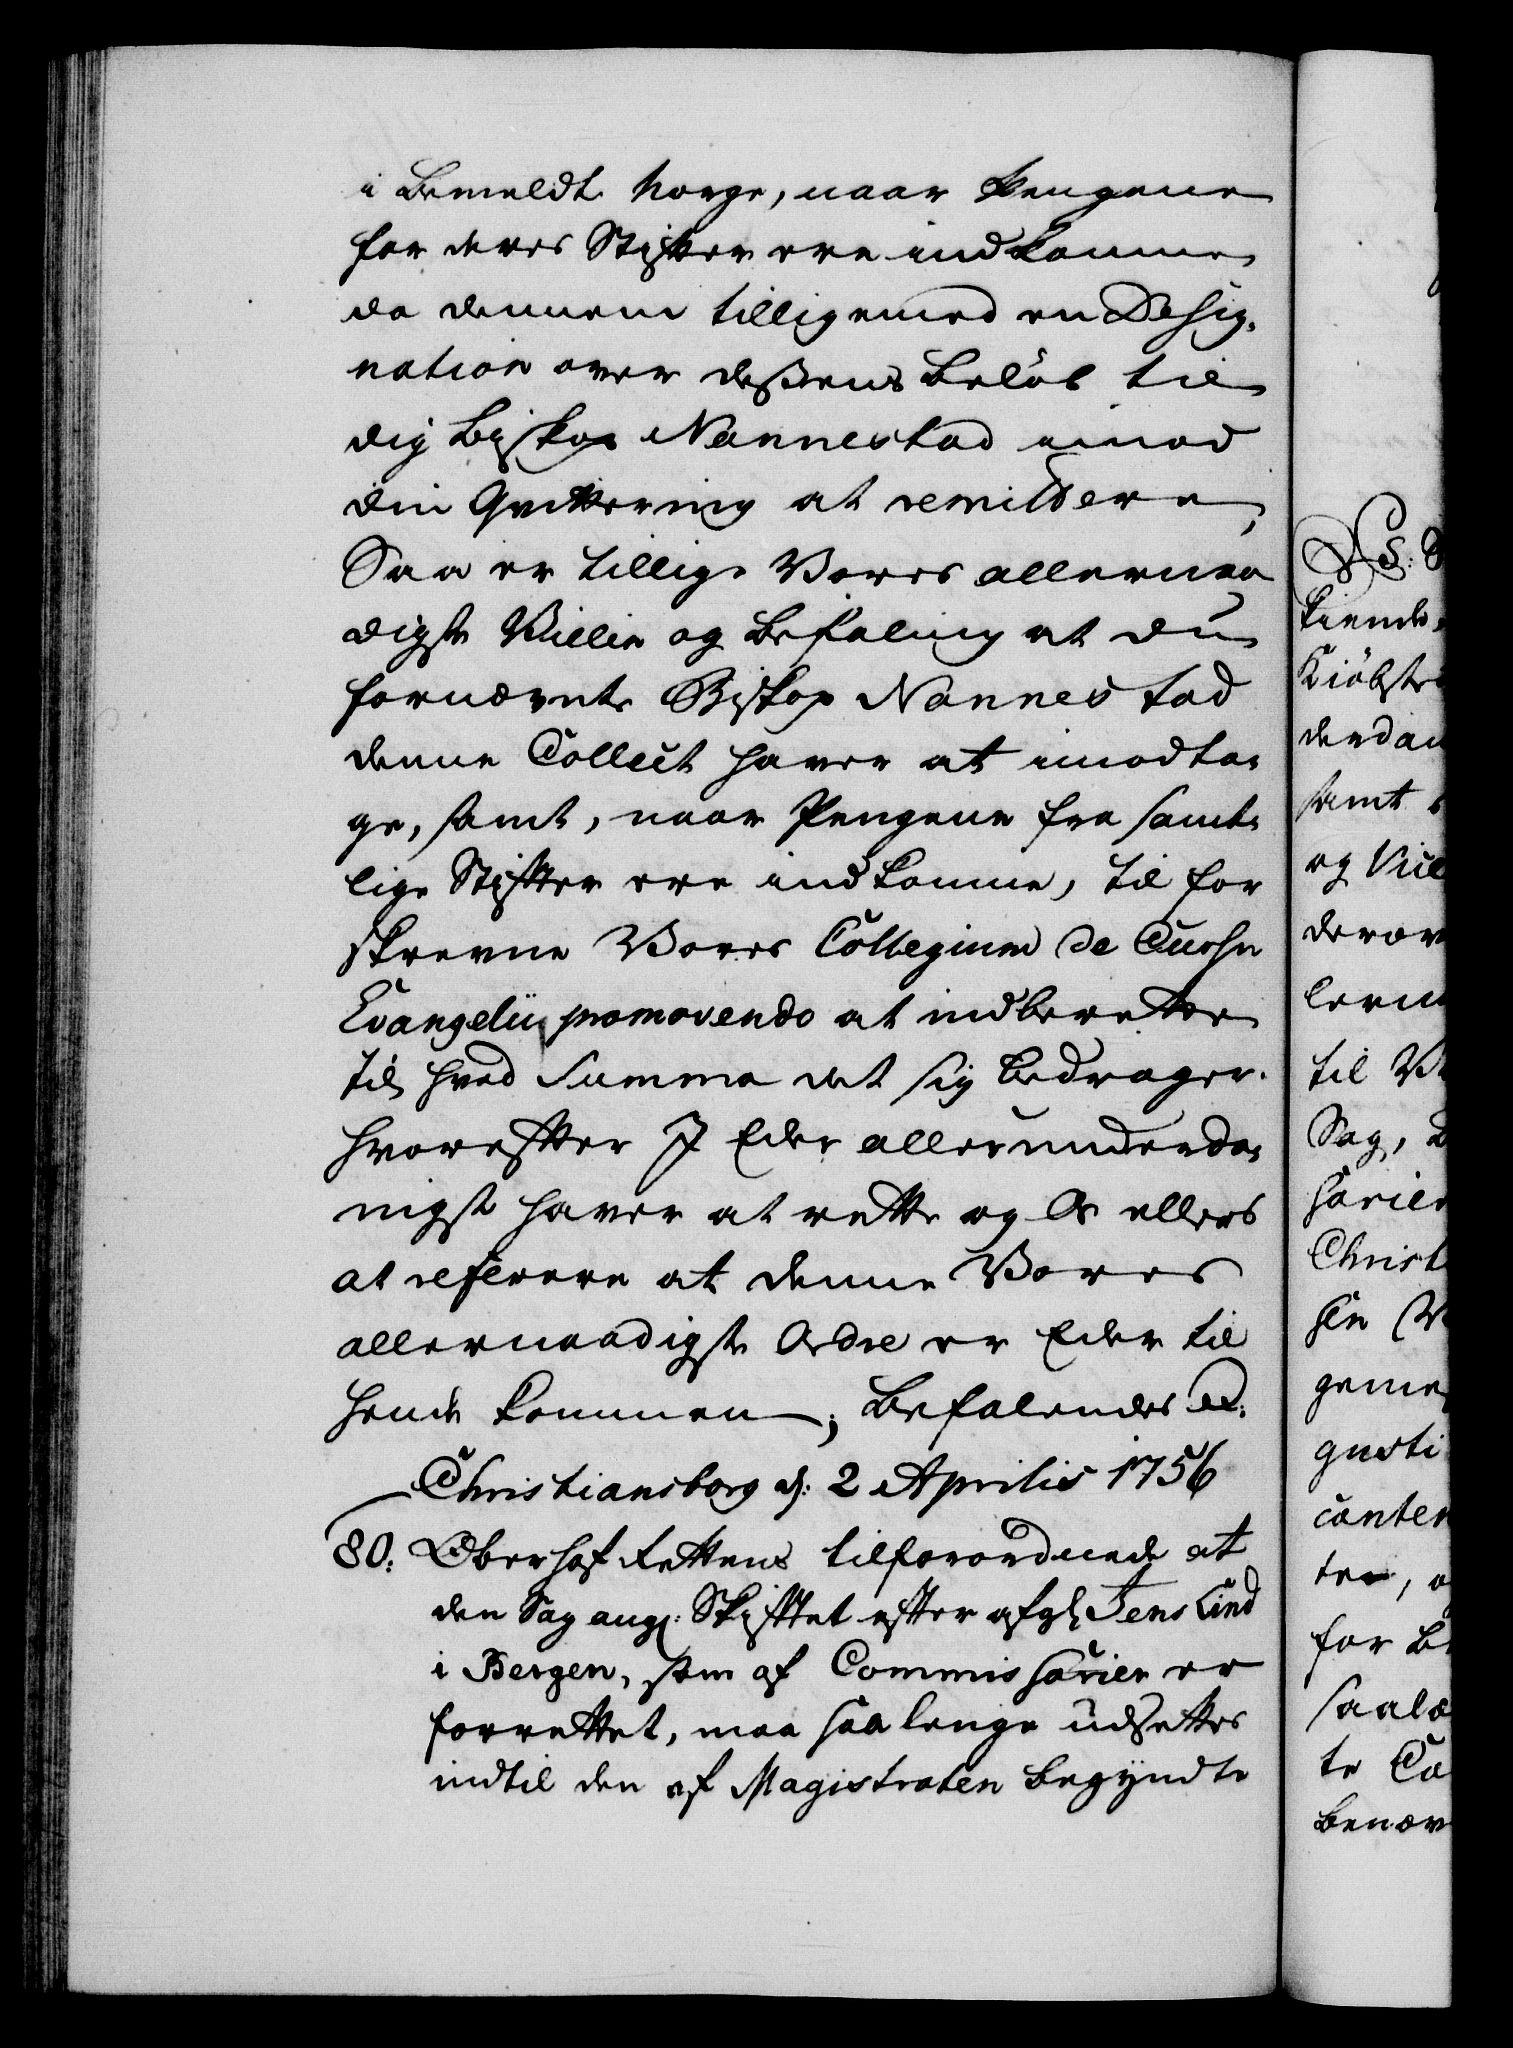 i bemeldte Norge, naar Pengene
for deres Stifter ere indkomne
da dennem tilligemed en Desig-
nation over dessens Beløb til
dig Biskop Nannestad imod
din Qvittering at remittere,
Saa er tillige Vores allernaa
digste Villie og Befaling at du
fornævnte Biskop Nannestad
denne Collect haver at imodta-
ge, samt, naar Pengene fra samt-
lige Stifter ere indkomne, til for
skrevne Vores Collegium de Cursu
Evangelii promovendo at indberette
til hvad Summa det sig bedrager.
hvorefter I Eder allerunderda-
nigst haver at rette og Os ellers
at referere at denne Vores
allernaadigste Ordre er Eder til
hænde kommen; Befalendes &c.
Christiansborg d: 2 Aprilis 1756
80: Oberhof Rettens tilforordnede at
den Sag ang: Skiftet efter afg: Jens Lind
i Bergen, som af Commissarier er
forrettet, maa saa længe udsettes
indtil den af Magistraten begyndte
S: S
kiende
Kiøbste
derdan
samt
og Vice
derov
lern
til V
Sag,
sarier
Christ
sin V
geme
gusti
conten
ter,
for b
saalæ
te Co
benæv